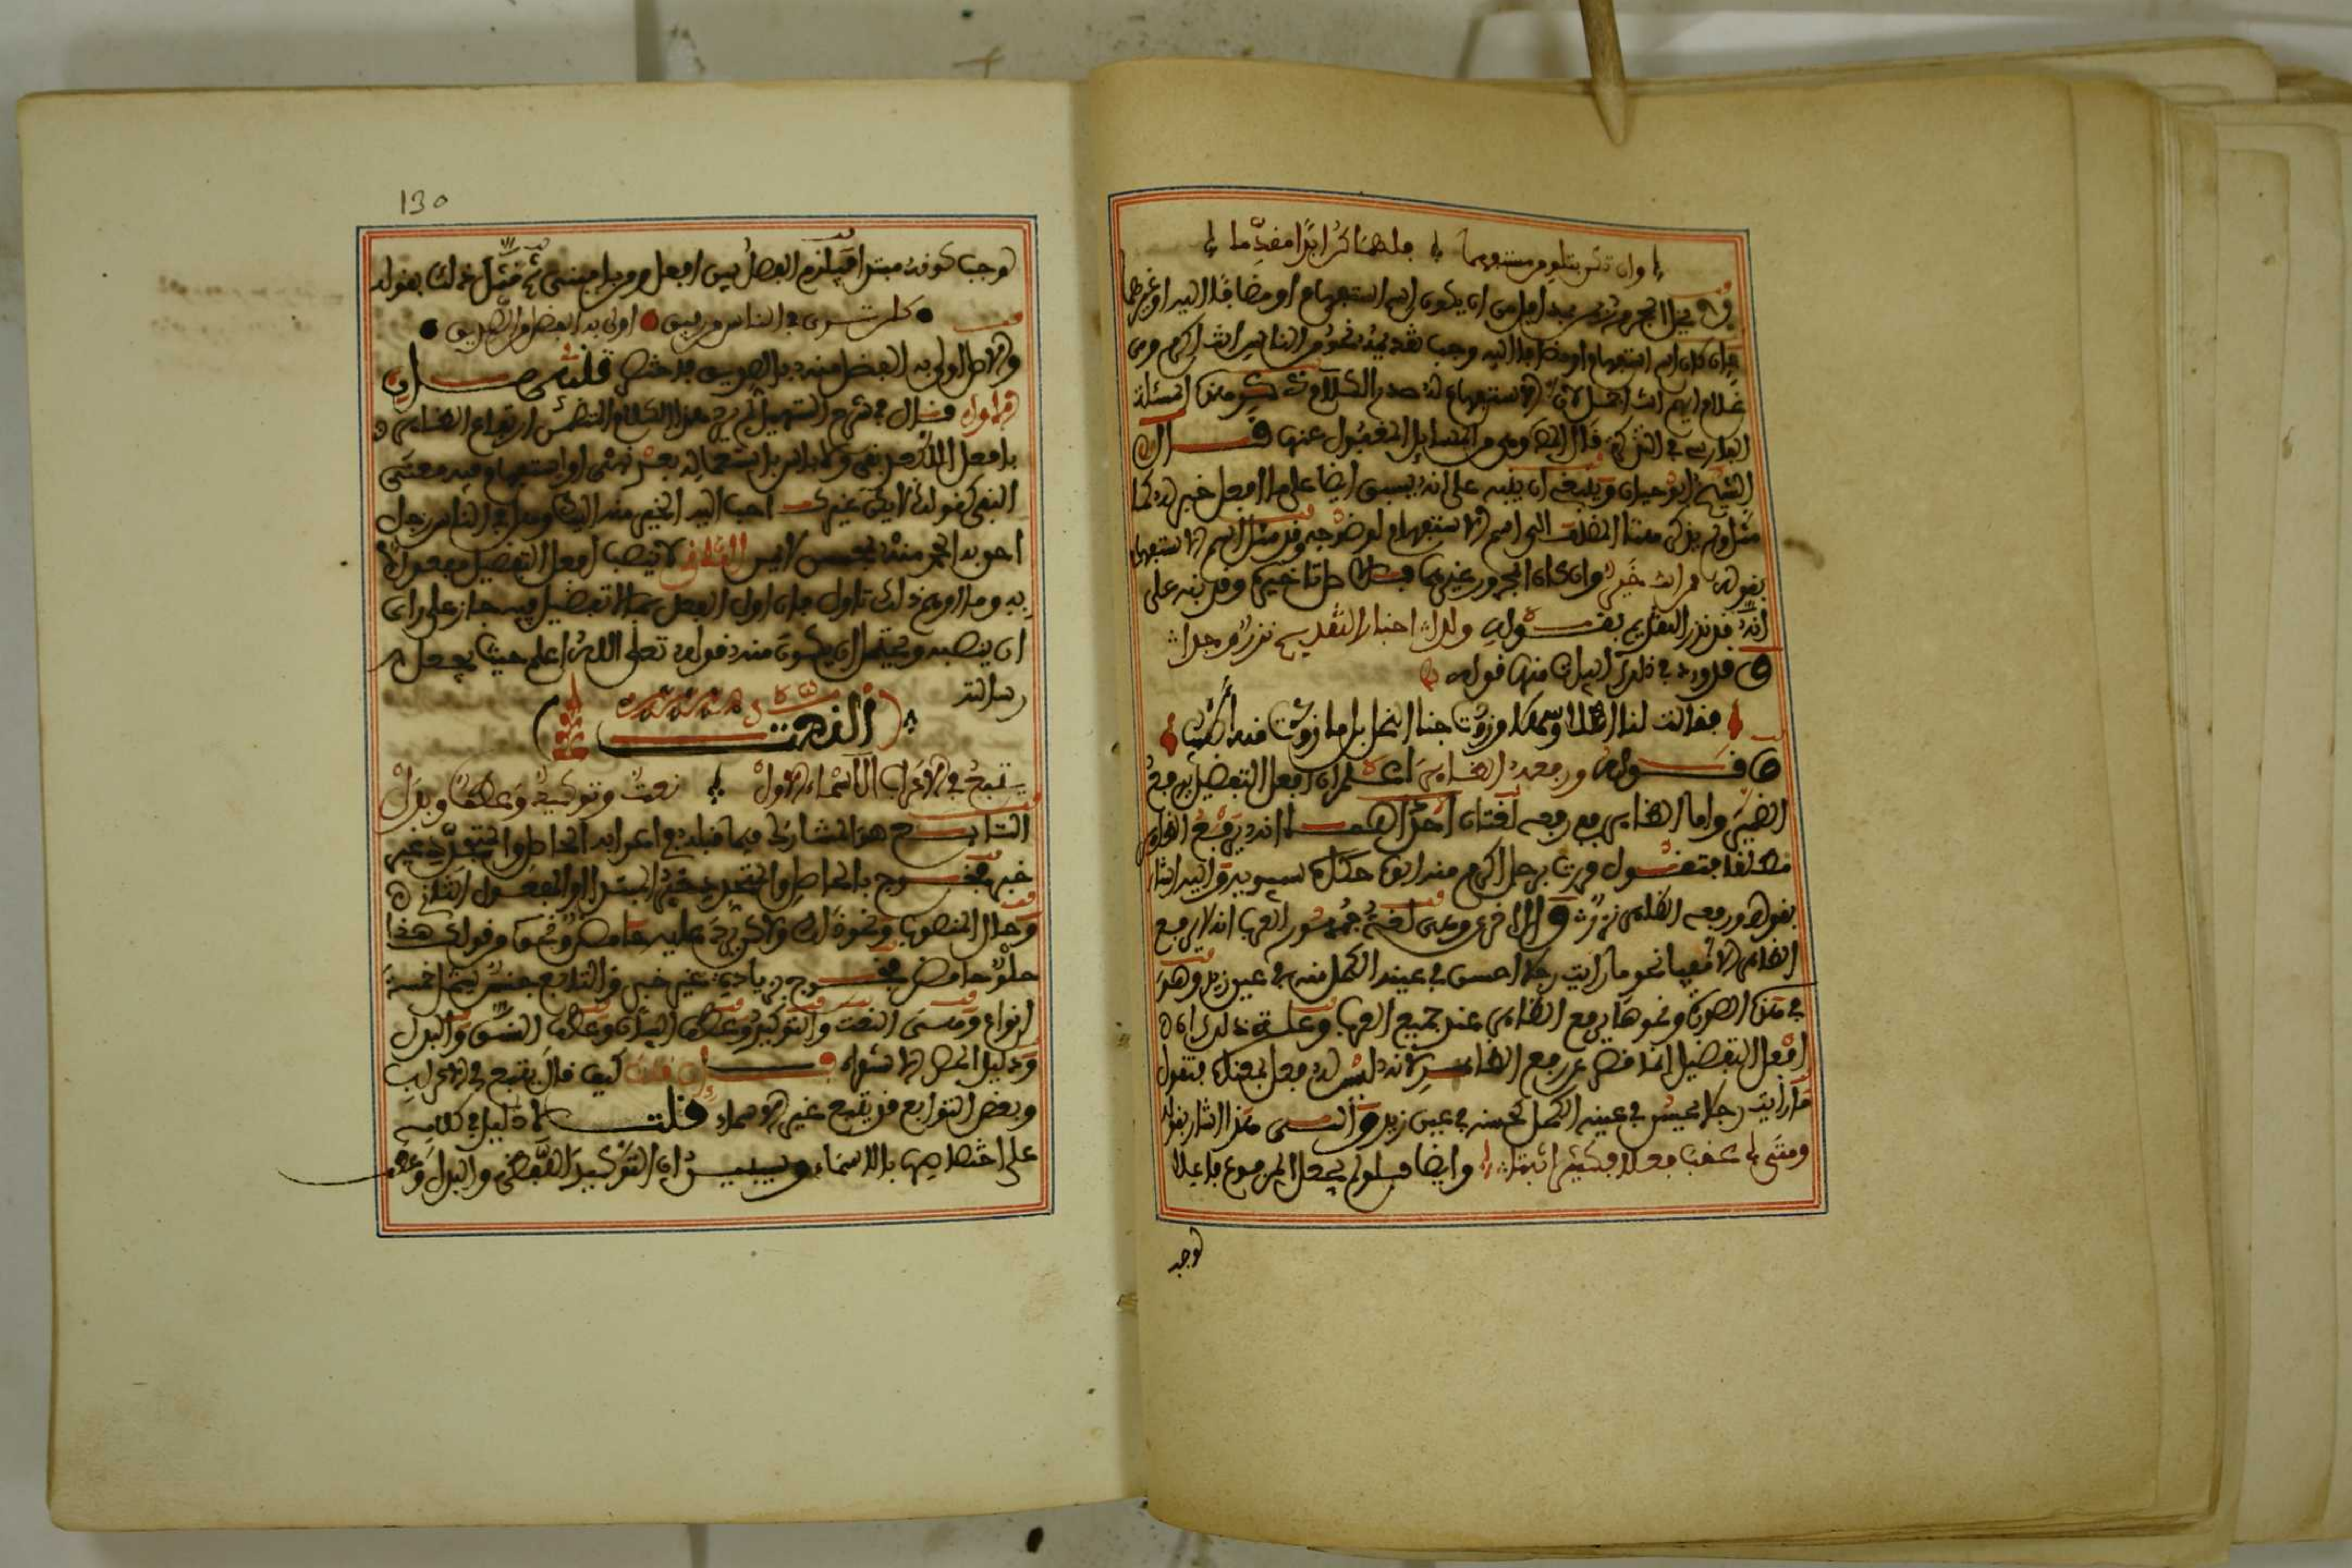 وان تكن بتلو من مستفهما فلهما كن ابدا مقدما
لا يخلو المجرور بمن بعد افعل من ان يكون اسم استفهام او مضافا اليه او غيرهما
فان كان اسم استفهام او مضافا اليه وجب تقديمه نحو من الناس انت اكرم ومن
غلام ايهم انت افضل لان الاستفهام له صدر الكلام ذكر هذه المسئلة
الفارسي في التذكرة قال المص وهي من المسايل المغفول عنها قال
الشيخ ابو حيان وينبغي ان ينبه على انه يسبق ايضا على ما افعل خبر له كما
مثل ولم يذكر هنا المضاف الى اسم الاستفهام لوضوحه وقد مثل اسم الاستفهام
بقوله ممن انت خير وان كان المجرور غيرهما فالاصل تاخيره وقد نبه على
انه قد نزر التقديم بقوله ولدى اخبار التقديم نزرا وجدا
وقد ورد في ذلك ابيات منها قوله
فقالت لنا اهلا وسهلا وزودت جنا النحل بل ما زودت منه اطيب
قوله ورفعه الظاهر اعلم ان افعل التفضيل يرفع
الضمير واما الظاهر ففي رفعه لغتان احداهما انه يرفع الظاهر
مطلقا فتقول مررت برجل اكرم منه ابوه حكاه سيبويه واليه اشار
بقوله ورفعه الظاهر نزر والاخرى وهي لغة جمهور العرب انه لا يرفع
الظاهر الا فيما نحو ما رايت رجلا احسن في عينه الكحل منه في عين زيد وهو
في هذه الصورة ونحوها يرفع الظاهر عند جميع العرب وعلة ذلك ان
افعل التفضيل انما قصر عن رفع الظاهر لانه ليس له فعل بمعناه فتقول
ما رايت رجلا يحسن في عينه الكحل كحسنه في عين زيد والى هذا اشار بقوله
ومتى عاقب فعلا فكثيرا ثبتا وايضا فلو لم يجعل المرفوع فاعلا
لوجب
130
لوجب كونه مبتدا فيلزم الفصل بين افعل ومن باجنبي ثم مثل ذلك بقوله
كلن ترى في الناس من رفيق اولى به الفضل من الصديق
والاصل اولى به الفضل منه بالصديق فاختصر قلت
الاول قال في شرح التسهيل لم يرد هذا الكلام المتضمن ارتفاع الظاهر
بافعل الا بعد نفي ولا باس باستعماله بعد نهي او استفهام فيه معنى
النفي كقولك لا يكن غيرك احب اليه الخير منه اليك وهل في الناس رجل
احق به الحمد منه بمحسن لا يمن الثاني لا ينصب افعل التفضيل مفعولا
به وما اوهم ذلك تاول فان اول افعل بما لا تفضيل فيه جاز على راي
ان ينصبه ويحتمل ان يكون منه قوله تعلى الله اعلم حيث يجعل
رسالته
النعت
يتبع في الاعراب الاسماء الاول نعت وتوكيد وعطف وبدل
التابع هو المشارك فيما قبله في اعرابه الحاصل والمتجدد غير
خبر فخرج بالحاصل والمتجدد خبر المبتدا والمفعول الثاني
وحال المنصوب ونحوه ذلك ولاكن يرد عليه حامض ونحوه من قولك هذا
حلو حامض فخرج بزيادة غير خبر والتابع جنس يشمل خمسة
انواع وهي النعت والتوكيد وعطف البيان وعطف النسق والبدل
ودليل الحصر الاستقراء فان قلت كيف قال يتبع في الاعراب
وبعض التوابع قد يتبع غير الاسماء قلت لا دليل في كلامه
على اختصاصها بالاسماء وسيبين ان التوكيد اللفظي والبدل وعطف